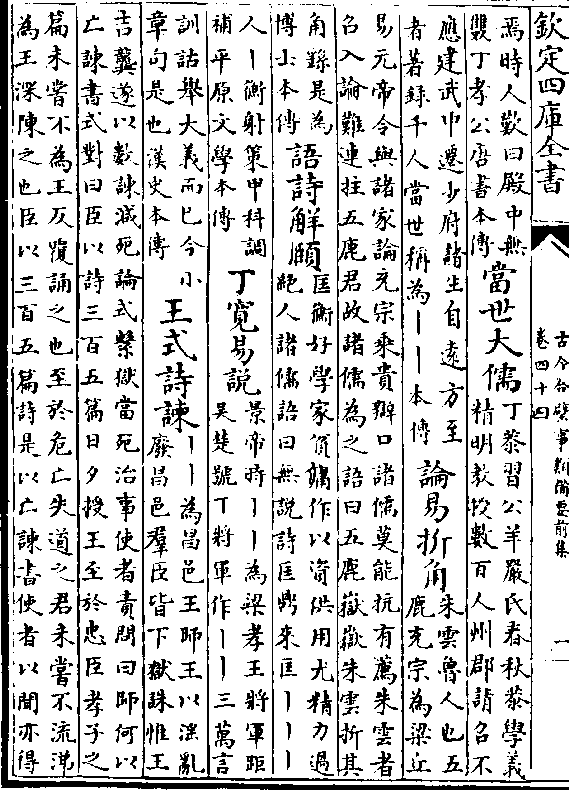 欽定四庫全書
古今合璧事類備要前集
卷四十四
一
焉時人歎曰殿中無
雙丁孝公唐書本傳
當世大儒
丁恭習公羊嚴氏春秋恭學義
精明教授數百人州郡請召不
應建武中遷少府諸生自遠方至
者著錄千人當世稱為丨丨本傳
論易折角
朱雲魯人也五
鹿充宗為梁丘
易元帝令與諸家論充宗乘貴辯口諸儒莫能抗有薦朱雲者
召入論難連拄五鹿君故諸儒為之語曰五鹿嶽嶽朱雲折其
角繇是為
博士本傳
語詩解頤
匡衡好學家貧傭作以資供用尤精力過
絕人諸儒語曰無說詩匡鼎來匡丨丨丨
人丨衡射策甲科調
補平原文學本傳
丁寬易說
景帝時丨丨為梁孝王將軍距
吳楚號丁將軍作丨丨三萬言
訓詁舉大義而已今小
章句是也漢史本傳
王式詩諫
丨丨為昌邑王師王以淫亂
廢昌邑羣臣皆下獄誅惟王
吉龔遂以數諫減死論式繫獄當死治事使者責問曰師何以
亡諫書式對曰臣以詩三百五篇日夕授王至於忠臣孝子之
篇未嘗不為王反覆誦之也至於危亡失道之君未嘗不流涕
為王深陳之也臣以三百五篇詩是以亡諫書使者以聞亦得